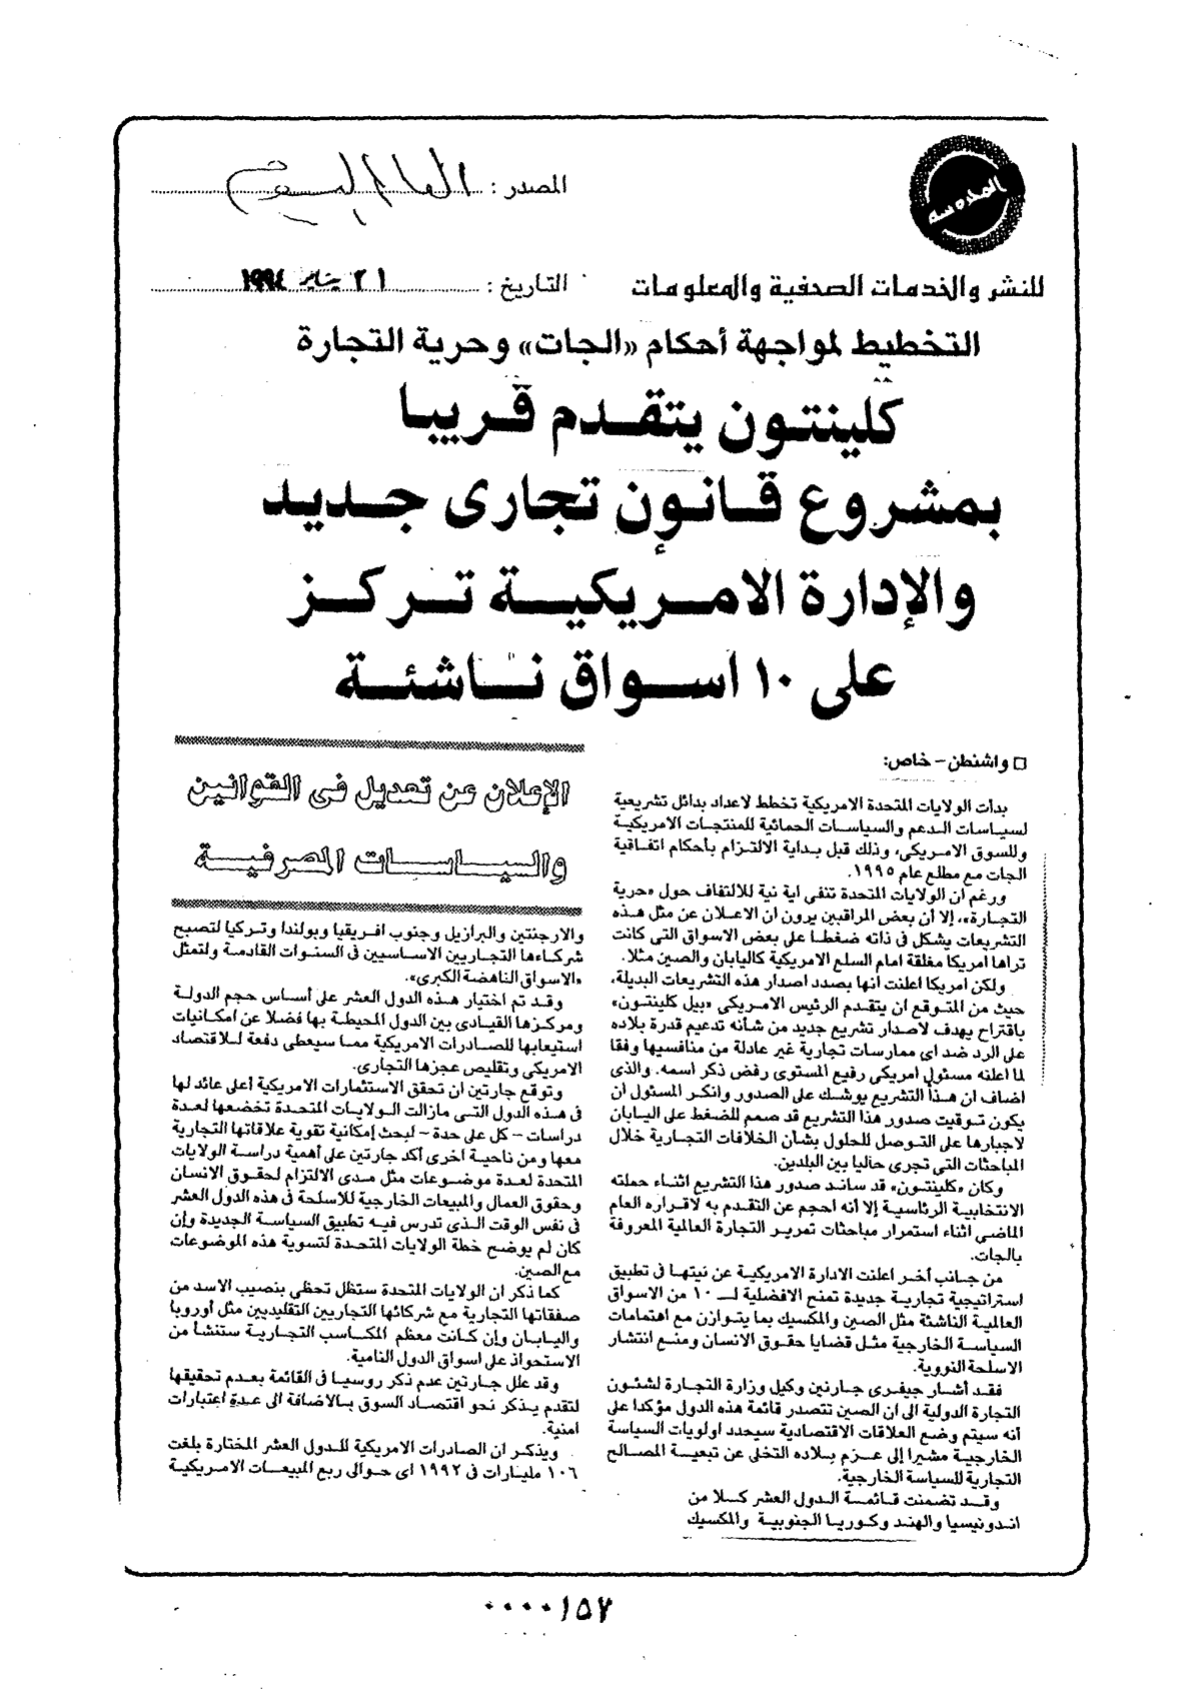 المحروسة
المصدر : العالم اليوم
للنشر والخدمات الصحفية والمعلومات
التاريخ : ٢١ يناير ١٩٩٤
التخطيط لمواجهة أحكام «الجات» وحرية التجارة
كلينتون يتقدم قريبا
بمشروع قانون تجارى جديد
والإدارة الامريكية تركز
على ١٠ اسواق ناشئة
□ واشنطن - خاص:
بدأت الولايات المتحدة الامريكية تخطط لاعداد بدائل تشريعية
لسياسات الدعم والسياسات الحمائية للمنتجات الامريكية
وللسوق الامريكى، وذلك قبل بداية الالتزام بأحكام اتفاقية
الجات مع مطلع عام ١٩٩٥.
ورغم ان الولايات المتحدة تنفى اية نية للالتفاف حول «حرية
التجارة»، إلا أن بعض المراقبين يرون ان الاعلان عن مثل هذه
التشريعات يشكل فى ذاته ضغطا على بعض الاسواق التى كانت
تراها امريكا مغلقة امام السلع الامريكية كاليابان والصين مثلا.
ولكن امريكا اعلنت انها بصدد اصدار هذه التشريعات البديلة،
حيث من المتوقع ان يتقدم الرئيس الامريكى «بيل كلينتون»
باقتراح يهدف لاصدار تشريع جديد من شأنه تدعيم قدرة بلاده
على الرد ضد اى ممارسات تجارية غير عادلة من منافسيها وفقا
لما اعلنه مسئول امريكى رفيع المستوى رفض ذكر اسمه. والذى
اضاف ان هذا التشريع يوشك على الصدور وانكر المسئول ان
يكون توقيت صدور هذا التشريع قد صمم للضغط على اليابان
لاجبارها على التوصل للحلول بشأن الخلافات التجارية خلال
المباحثات التى تجرى حاليا بين البلدين.
وكان «كلينتون» قد ساند صدور هذا التشريع اثناء حملته
الانتخابية الرئاسية إلا أنه احجم عن التقدم به لاقراره العام
الماضى اثناء استمرار مباحثات تمرير التجارة العالمية المعروفة
بالجات.
من جانب أخر اعلنت الادارة الامريكية عن نيتها فى تطبيق
استراتيجية تجارية جديدة تمنح الافضلية لــ ١٠ من الاسواق
العالمية الناشئة مثل الصين والمكسيك بما يتوازن مع اهتمامات
السياسة الخارجية مثل قضايا حقوق الانسان ومنع انتشار
الاسلحة النووية.
فقد أشار جيفرى جارتين وكيل وزارة التجارة لشئون
التجارة الدولية الى ان الصين تتصدر قائمة هذه الدول مؤكدا على
أنه سيتم وضع العلاقات الاقتصادية سيحدد اولويات السياسة
الخارجية مشيرا إلى عزم بلاده التخلى عن تبعية المصالح
التجارية للسياسة الخارجية.
وقد تضمنت قائمة الدول العشر كلا من
اندونيسيا والهند وكوريا الجنوبية والمكسيك
الإعلان عن تعديل فى القوانين
والسياسات المصرفية
والارجنتين والبرازيل وجنوب افريقيا وبولندا وتركيا لتصبح
شركاءها التجاريين الاساسيين فى السنوات القادمة ولتمثل
«الاسواق الناهضة الكبرى».
وقد تم اختيار هذه الدول العشر على أساس حجم الدولة
ومركزها القيادى بين الدول المحيطة بها فضلا عن امكانيات
استيعابها للصادرات الامريكية مما سيعطى دفعة للاقتصاد
الامريكى وتقليص عجزها التجارى.
وتوقع جارتين ان تحقق الاستثمارات الامريكية أعلى عائد لها
فى هذه الدول التى مازالت الولايات المتحدة تخضعها لعدة
دراسات - كل على حدة - لبحث إمكانية تقوية علاقاتها التجارية
معها ومن ناحية اخرى أكد جارتين على أهمية دراسة الولايات
المتحدة لعدة موضوعات مثل مدى الالتزام لحقوق الانسان
وحقوق العمال والمبيعات الخارجية للأسلحة فى هذه الدول العشر
فى نفس الوقت الذى تدرس فيه تطبيق السياسة الجديدة وإن
كان لم يوضح خطة الولايات المتحدة لتسوية هذه الموضوعات
مع الصين.
كما ذكر ان الولايات المتحدة ستظل تحظى بنصيب الاسد من
صفقاتها التجارية مع شركائها التجاريين التقليديين مثل أوروبا
واليابان وإن كانت معظم المكاسب التجارية ستنشأ من
الاستحواذ على اسواق الدول النامية.
وقد علل جارتين عدم ذكر روسيا فى القائمة بعدم تحقيقها
لتقدم يذكر نحو اقتصاد السوق بالاضافة الى عدة اعتبارات
امنية.
ويذكر ان الصادرات الامريكية للدول العشر المختارة بلغت
١٠٦ مليارات فى ١٩٩٢ اى حوالى ربع المبيعات الامريكية
٠٠٠٠١٥٧